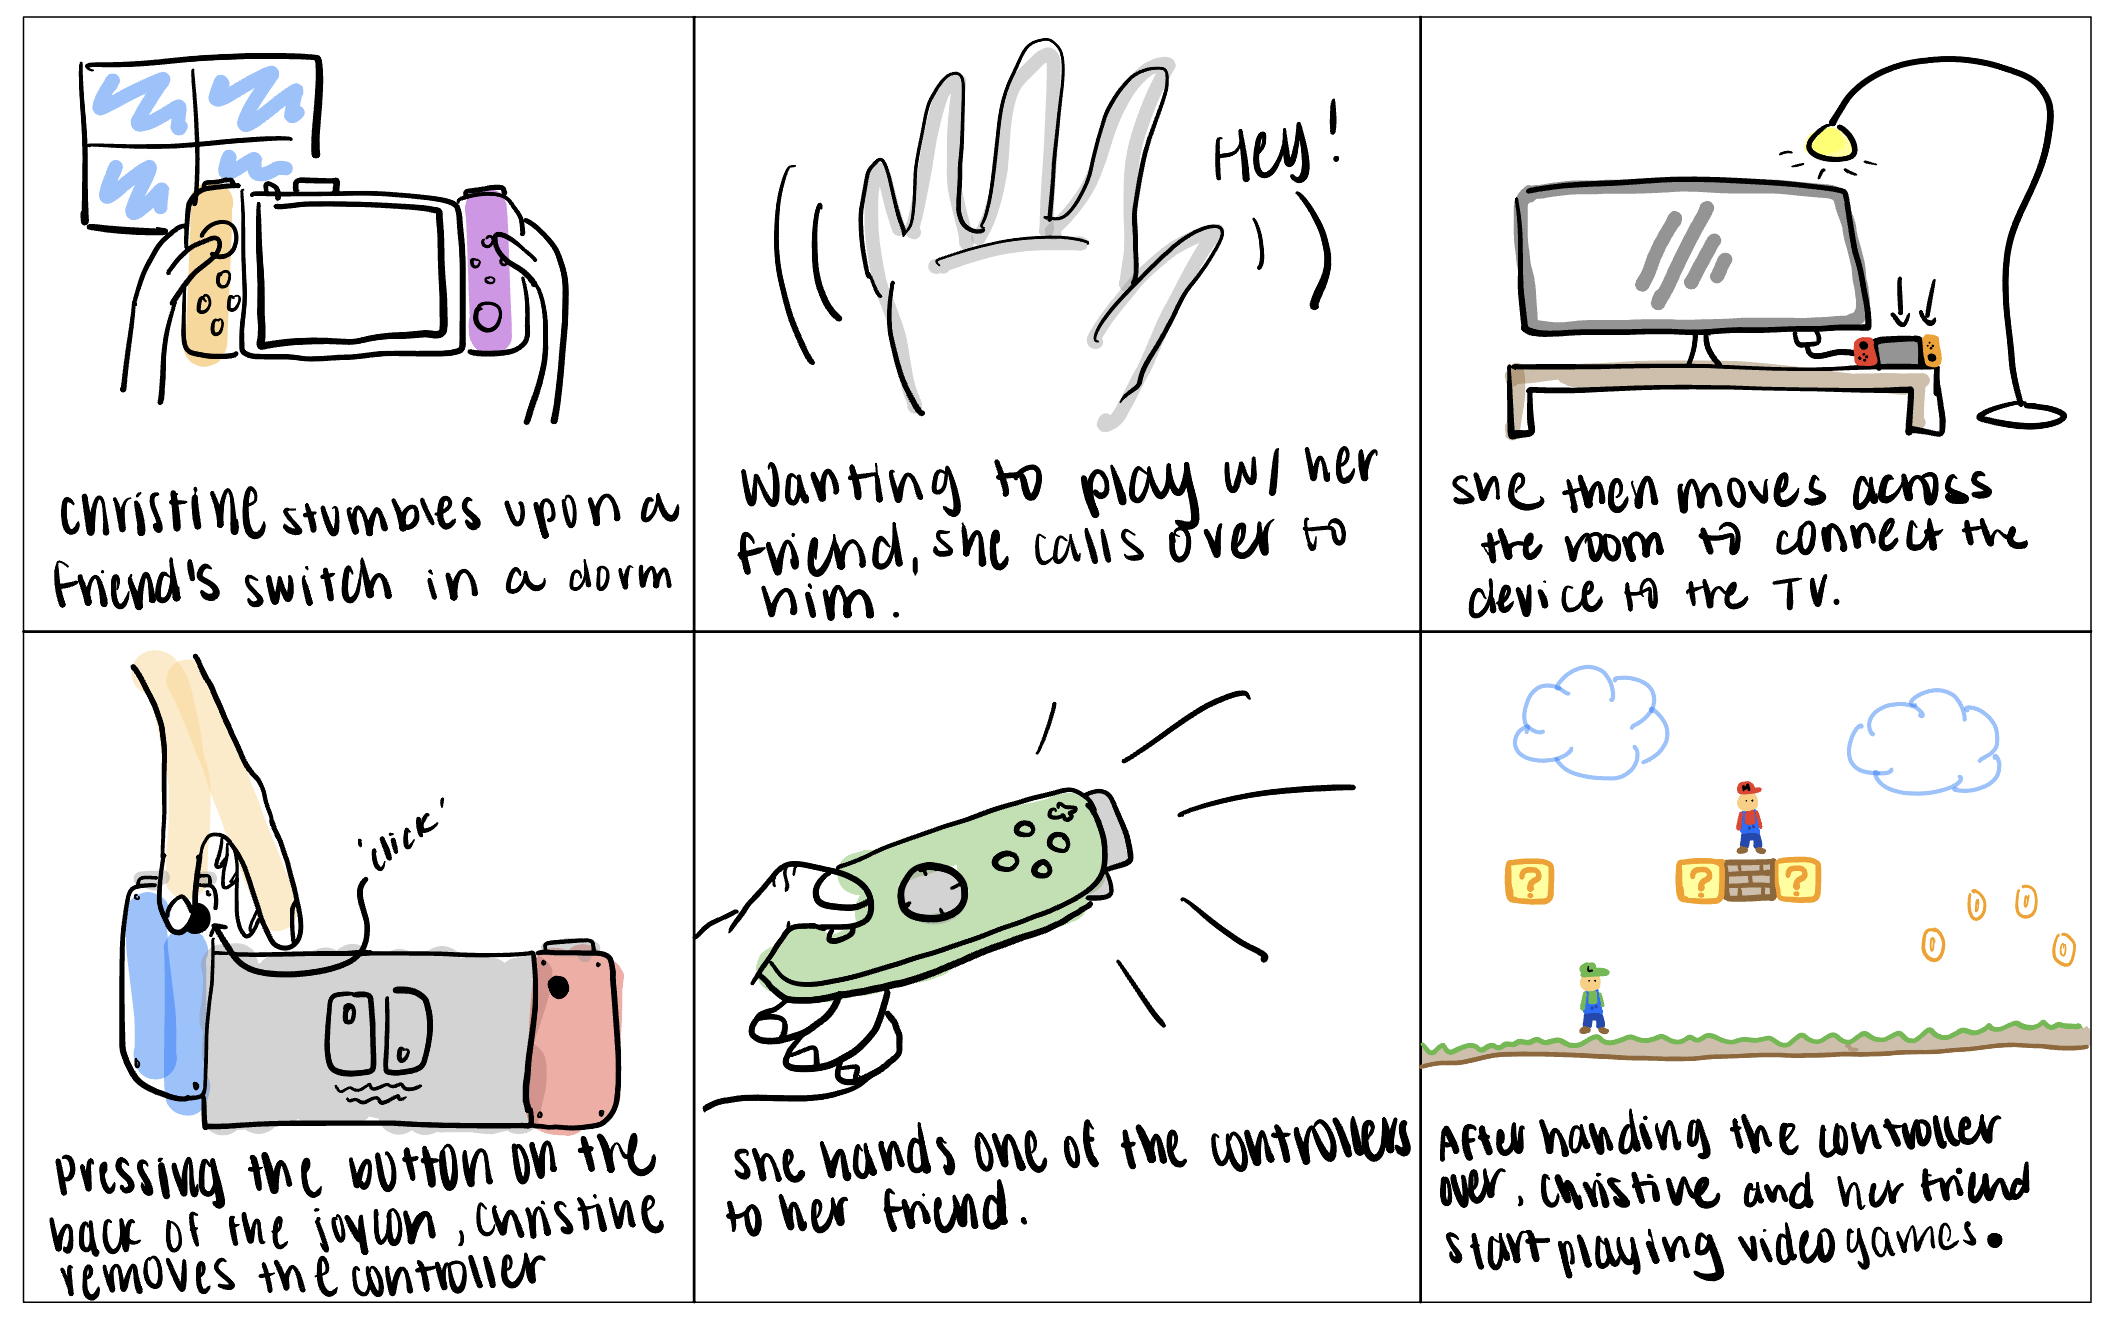 christine stumbles upon a
friend's switch in a dorm
Hey!
Wanting to play w/ her
friend, she calls over to
him.
she then moves across
the room to connect the
device to the TV.
'click'
Pressing the button on the
back of the joycon, christine
removes the controller
she hands one of the controllers
to her friend.
M
? ? ?
L
After handing the controller
over, christine and her friend
start playing video games.